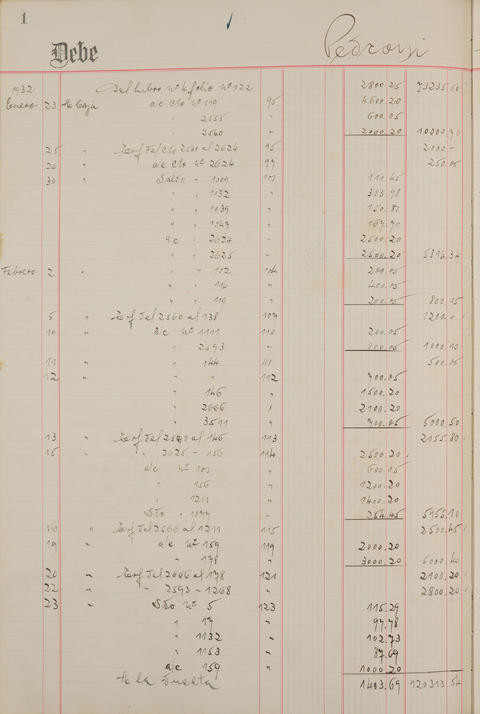 1
Debe Pedroni
1932 Del Libro Nº 4 folio Nº 122 2800.25 73235.60
Enero 23 A Caja a/c Cto Nº 119 95 4600.20
" 2555 " 600.05
" 2560 " 2000.20 10000.70
25 " 2561 al 2624 95 2000-
26 " a/c Cto Nº 2624 97 250.05
30 " Saldo " 1009 101 111.45
" " 1032 " 383.98
" " 1039 " 150.81
" " 1047 " 167.70
a/c " 2624 " 2500.20
" " 2625 " 2500.20 5814.34
Febrero 2 " " " 102 104 200.05
" " 114 " 400.05
" " 119 " 200.05 800.15
5 " Del 2560 al 138 107
10 " a/c Nº 1111 110 200.05
" 2593 " 800.05 1000.10
11 " " 144 111 500.05
12 " " " 112 700.05
" 146 1500.20
" 2666 2100.20
" 3511 " 700.05 5000.50
13 " al 146 113 2155.80
15 " " 2625 - 156 114 2500.20
a/c Nº 103 " 600.05
" 156 " 1200.20
" 1211 " 1400.20
Sdo " " 254.45 5955.10
16 " Del 2560 al 1211 115 2500.45
19 " a/c Nº 159 119 2000.20
" 178 " 3000.20 5000.40
20 " Del 2666 al 178 121 2100.20
22 " " 2593 - 1268 " 2800.20
23 " Sdo Nº 5 123 115.29
" 17 " 97.78
" 1132 " 102.73
" 1153 " 87.69
a/c 159 " 1000.20
A la Vuelta 1403.69 120313.54